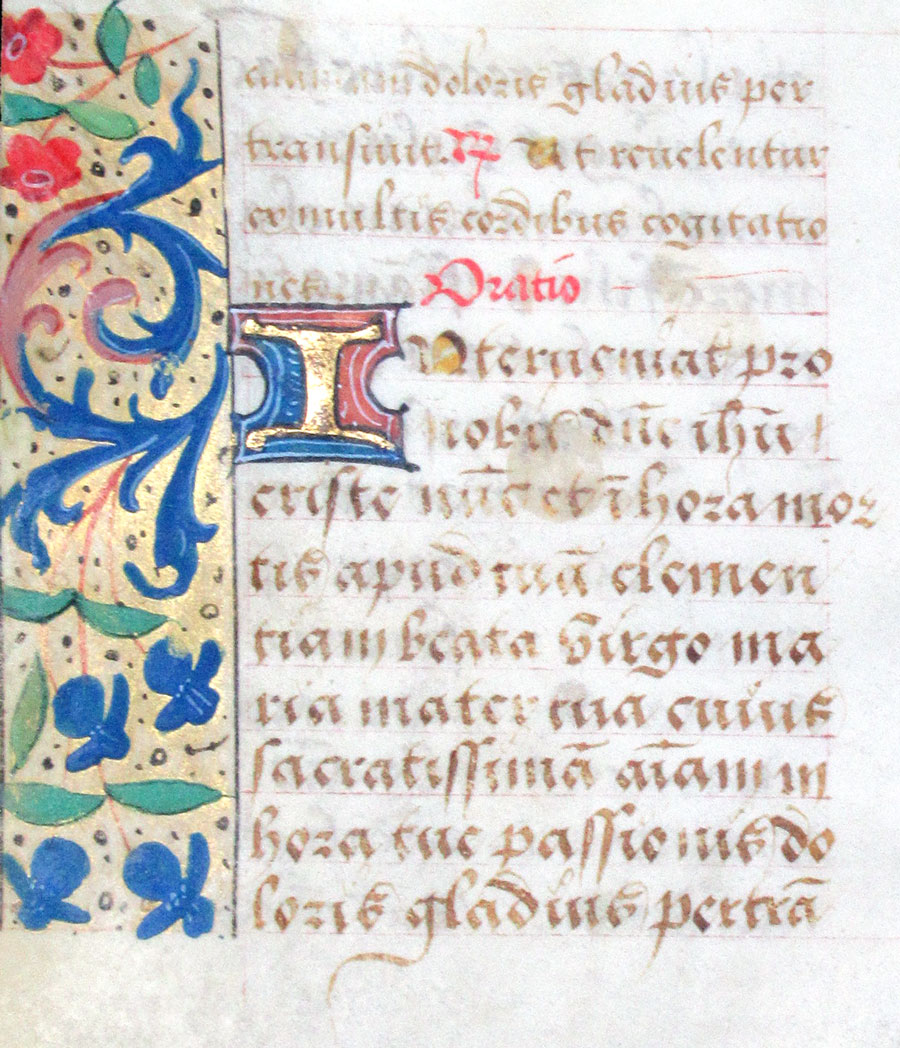 animam doloris gladius per
transiuit. R̃ Ut reuelentur
ex multis cordibus cogitatio
nes. Oratio
INterueniat pro
nobis dn̄e ih̄u
criste nūc et ī hora mor
tis apud tuā clemen
tiam beata Virgo ma
ria mater tua cuius
sacratissimā aīam in
hora tue passionis do
loris gladius pertrā